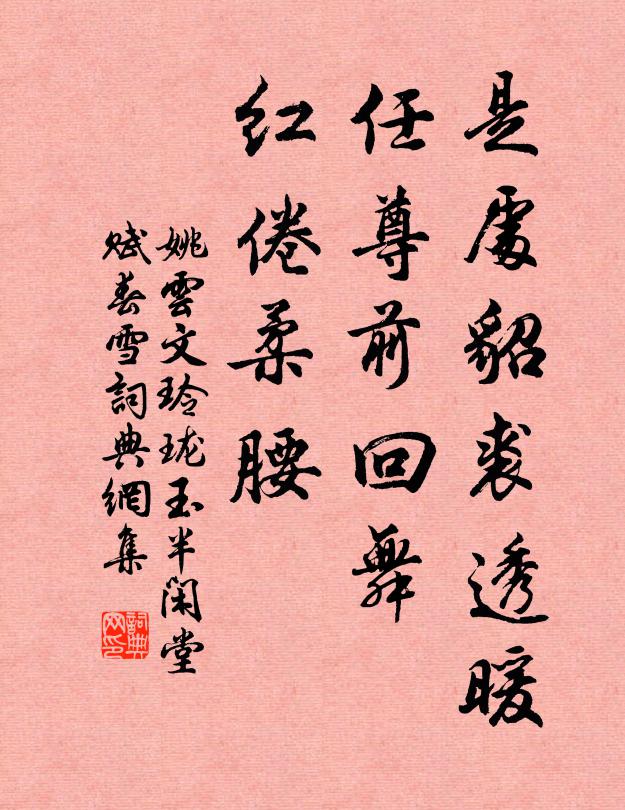 是處貂裘透暖
任尊前回舞
紅倦柔腰
姚雲文玲瓏玉半閑堂
賦春雪詞典網集
詞典
网印